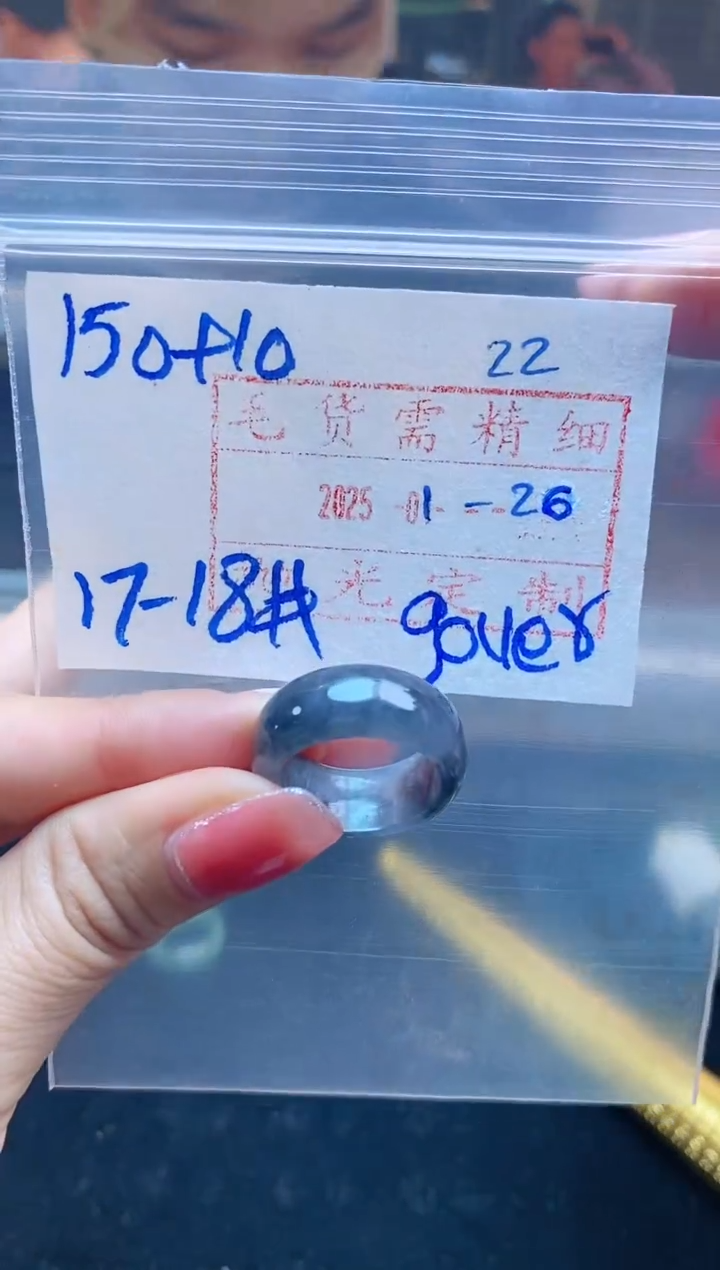 150+10
22
毛货需精细
2025-01--26
光定制
17-18# gover